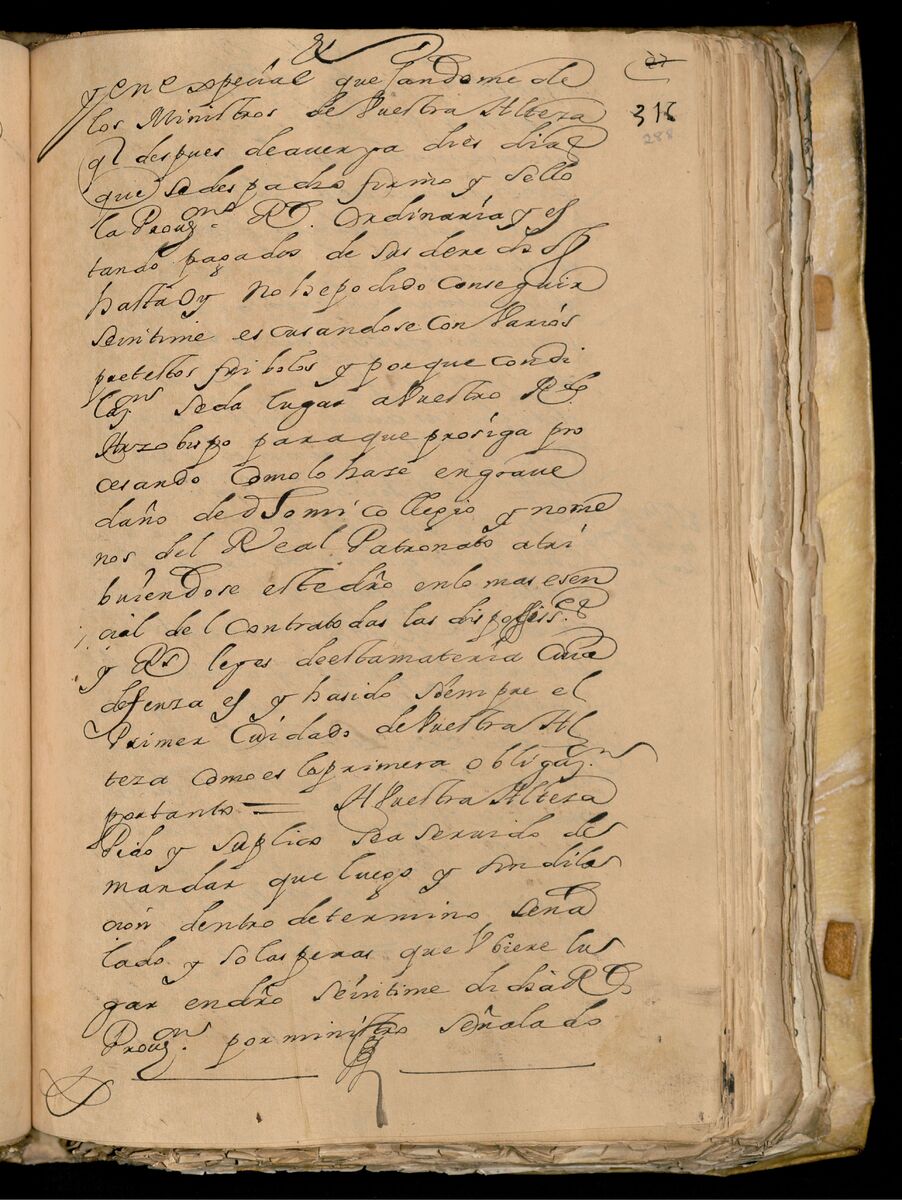 27
316
288
y en especial quexandome de
los Ministros de Vuestra Alteza
qe despues de aver ya dies dias
que se despacho firmo y sello
la Prouon. Rl. Ordinaria y es
tando pagados de sus derechos
hasta oy no he podido conseguir
se intime escusandose con Varios
pretestos fribolos y porque con di
laon se da lugar a Vuestro Rdo.
Arzobispo para que prosiga pro
cesando como lo hase en graue
daño de dho mi collegio y no me
nos del Real Patronato atri
buiendose este dro en lo mas esen
cial del contra todas las disposiss.
y Rs leyes de esta materia Cuia
defenza es y ha sido siempre el
Primer Cuidado de Vuestra Al
teza como es la primera obligaon.
por tanto = A Vuestra Alteza
Pido y suplico sea seruido de
mandar que luego y sin dila
cion dentro de termino seña
lado y so las penas que Vbiere lu
gar en dro se intime dicha Rl
Prouon. por ministro señalado